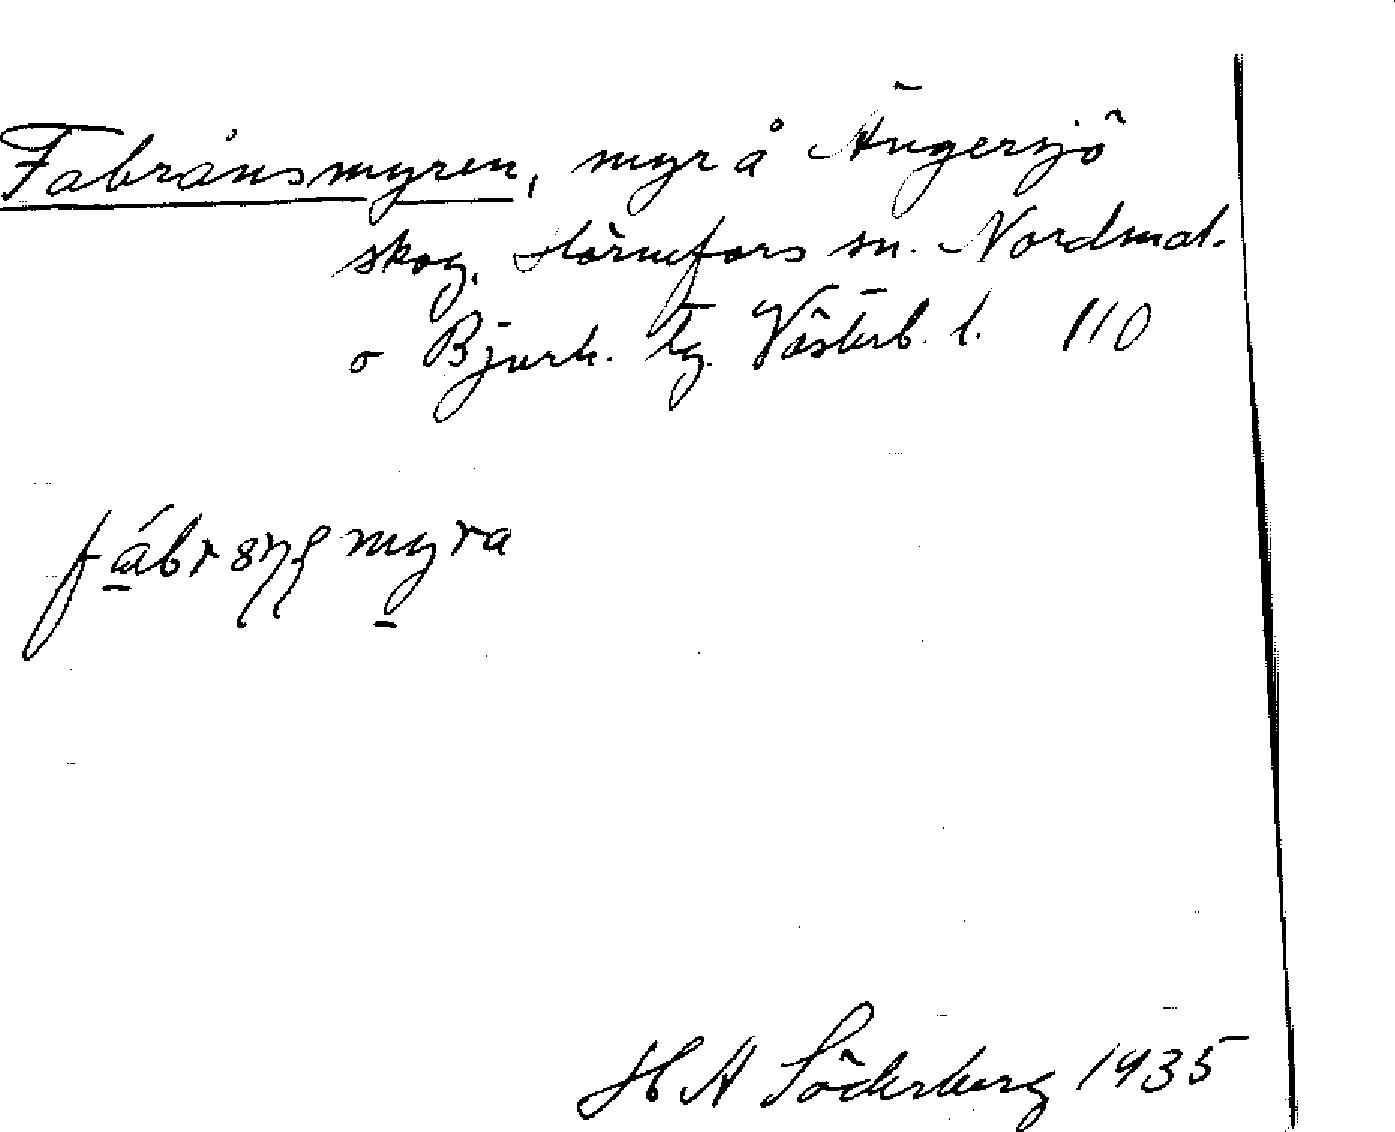 Fabrånsmyren, myr å Ängersjö
skog. Hörnefors sn. Nordmal.
o Bjurh. tg. Västerb. l. 110
myra
H A Söderberg 1935